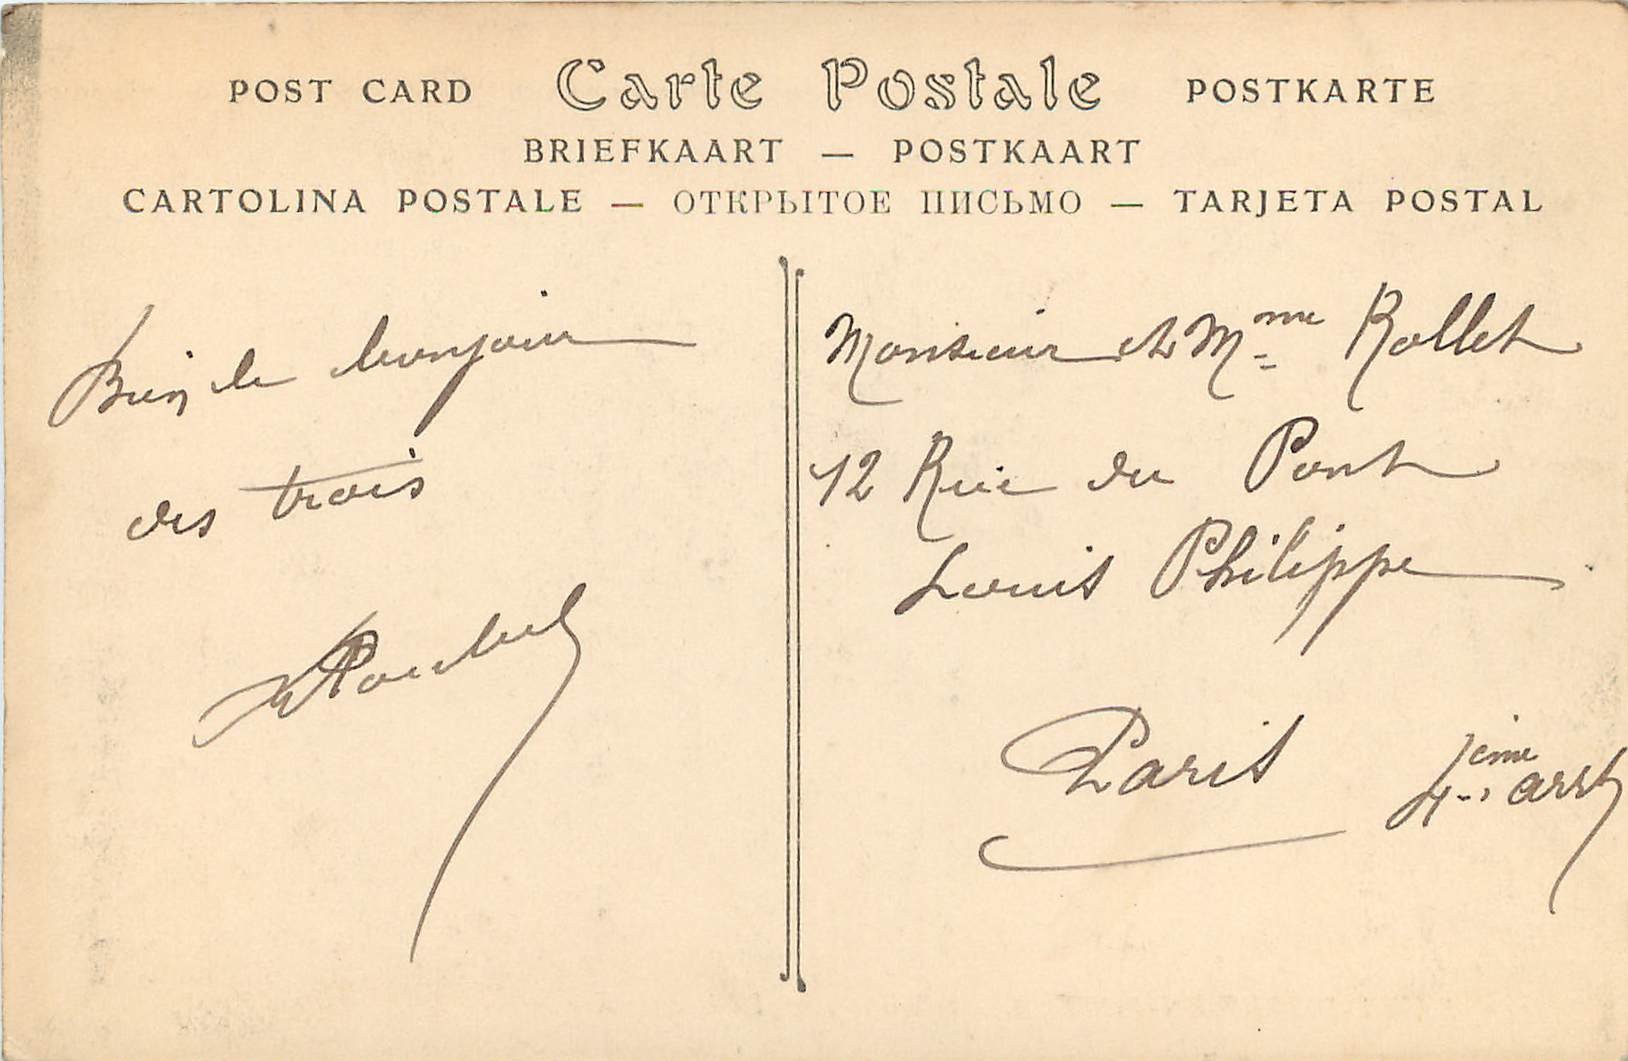 POST CARD Carte Postale POSTKARTE
BRIEFKAART — POSTKAART
CARTOLINA POSTALE — ОТКРЫТОЕ ПИСЬМО — TARJETA POSTAL
Bien le bonjour
des trois
Monsieur et Mme Rollet
12 Rue du Pont
Louis Philippe
Paris 4ème arrt